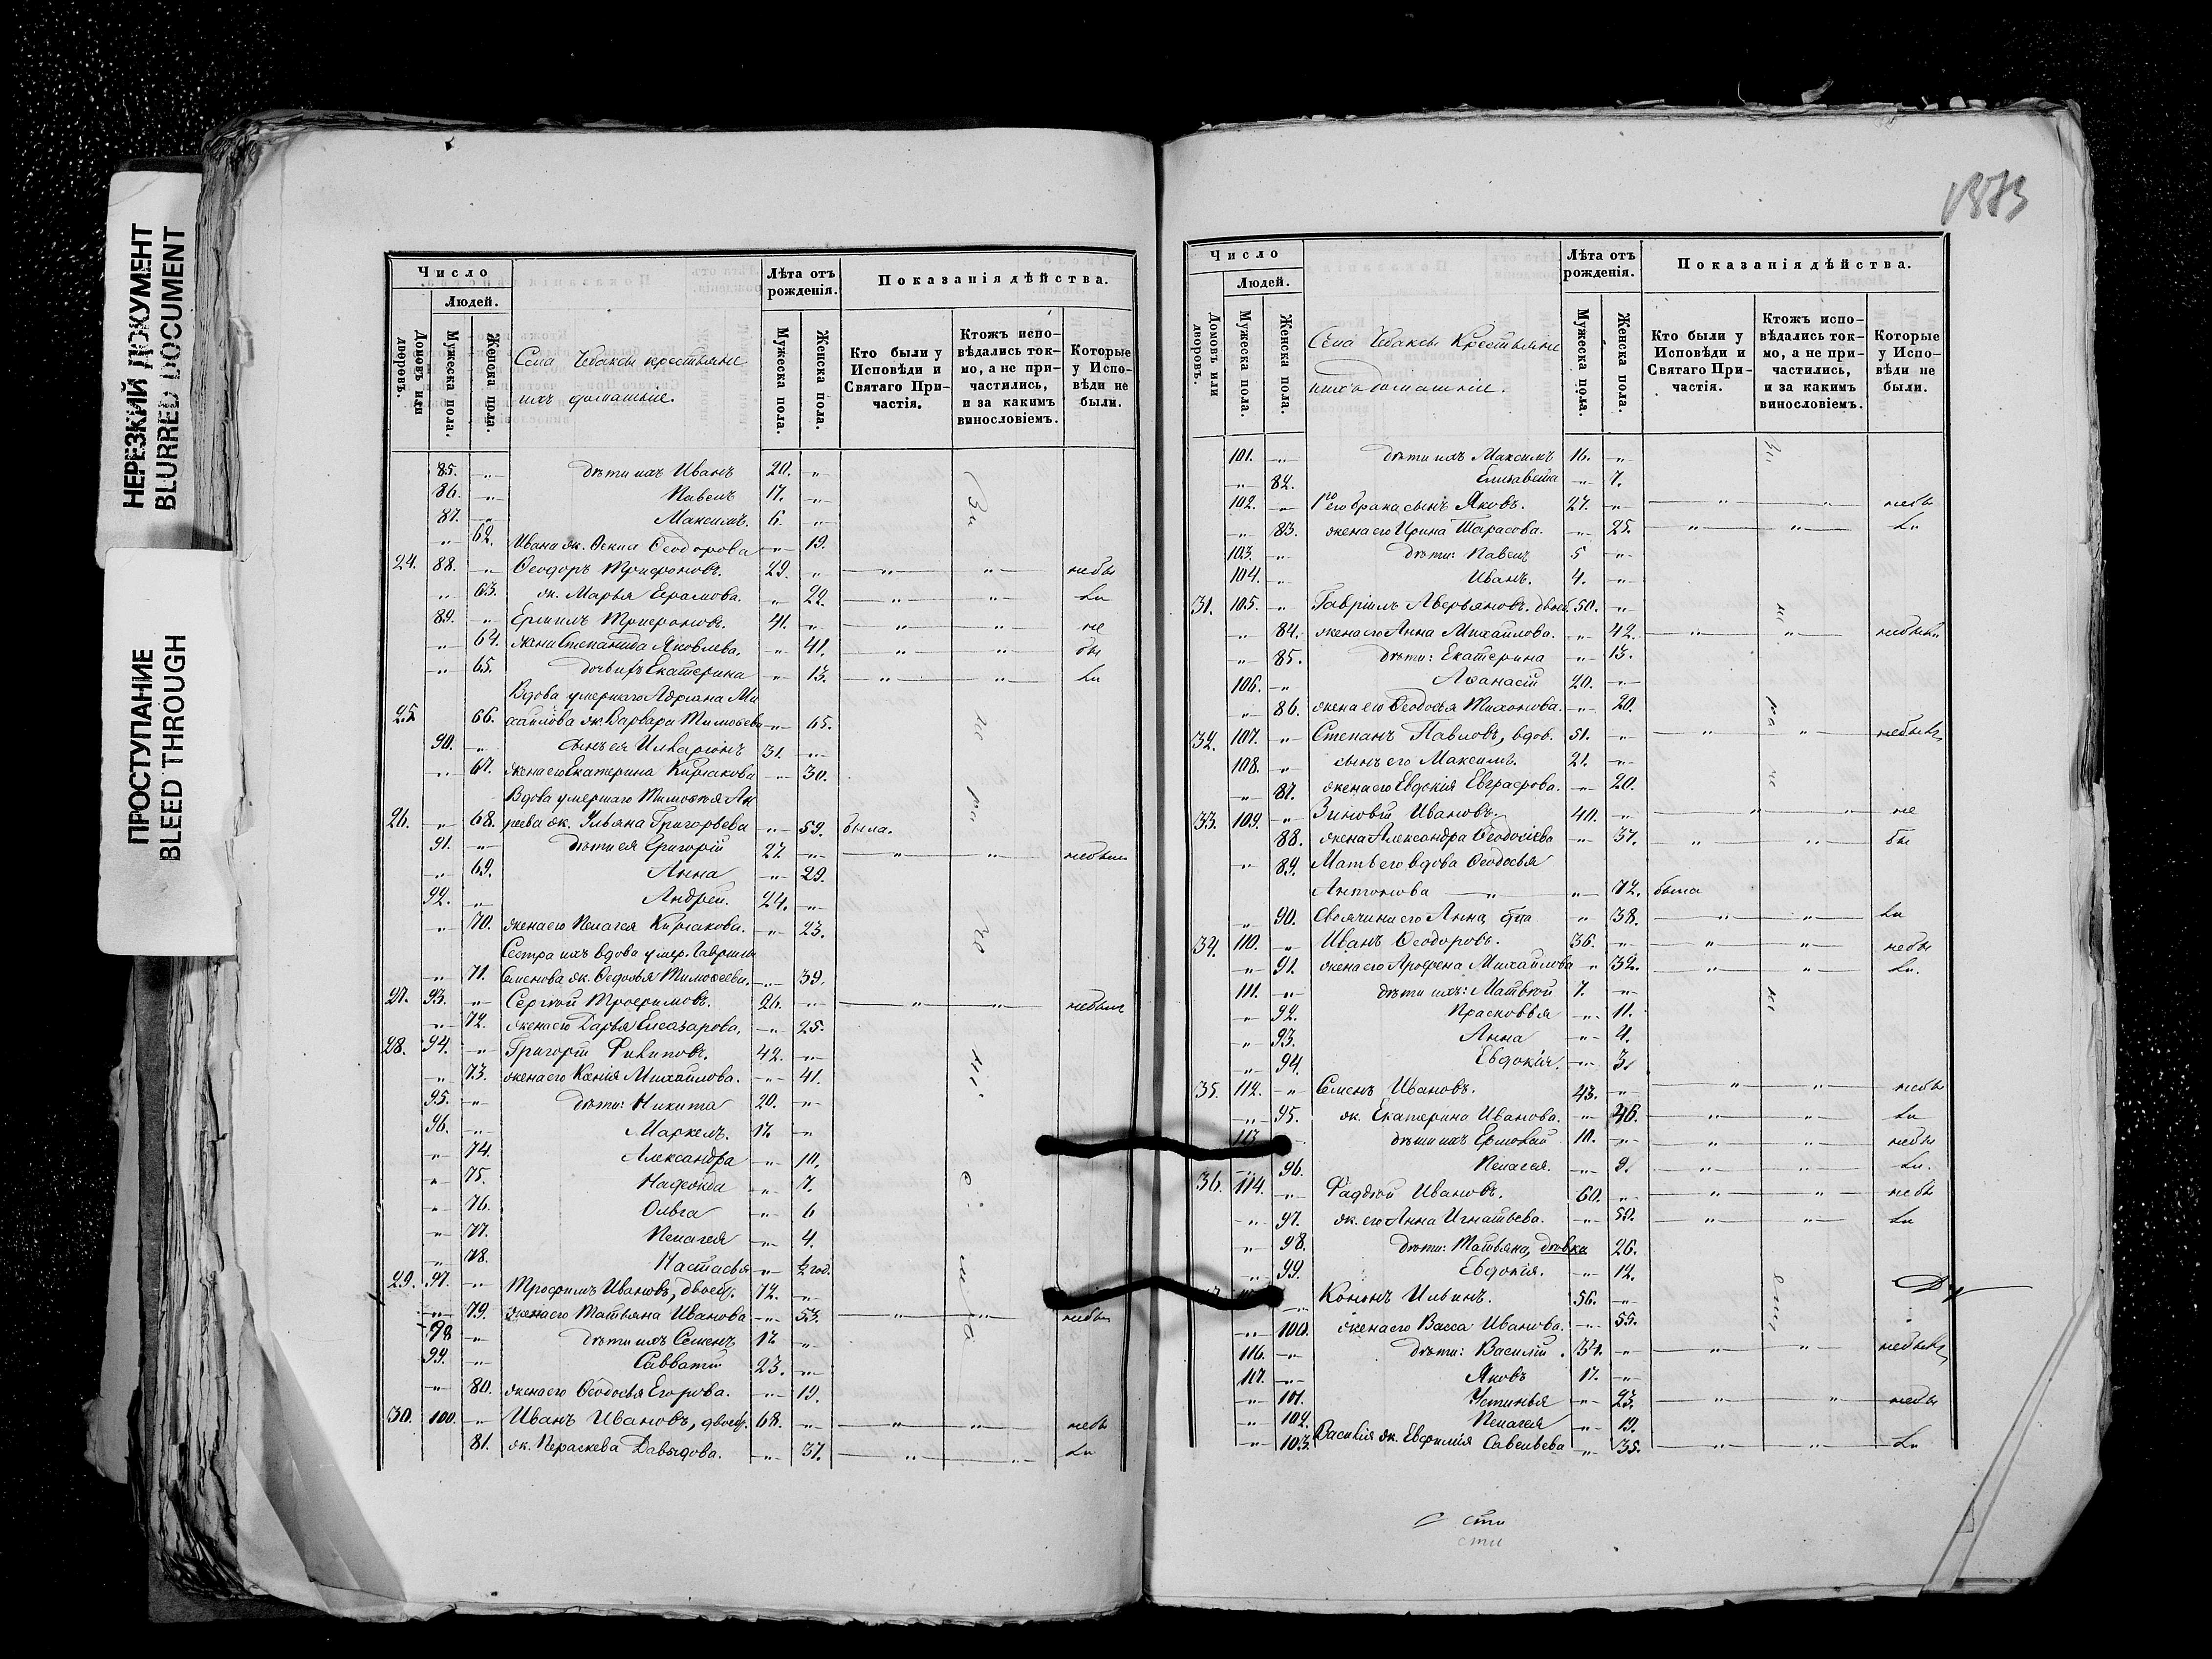 НЕРЕЗКИЙ ДОКУМЕНТ
BLURRED DOCUMENT
ПРОСТУПАНИЕ
BLEED THROUGH
Число
Людей.
Домовъ или дворовъ.
Мужеска пола.
Женска пола.
Села Чебаксы крестьяне
ихъ домашніе.
Лѣта отъ рожденія.
Мужеска пола.
Женска пола.
Показанія дѣйства.
Кто были у Исповѣди и Святаго Причастія.
Ктожъ исповѣдались токмо, а не причастились, и за какимъ винословіемъ.
Которые у Исповѣди не были.
85. „ дѣти ихъ Иванъ 20. „
86. „ Павелъ 17. „
87. „ Максимъ. 6. „
„ 62. Ивана ж. Ѳекла Ѳеодорова „ 19.
24. 88. „ Ѳеодоръ Трифоновъ. 29. „ „ „ небы
„ 63. ж. Марья „ 22. „ „ ли
89. „ Ермилъ Трифоновъ. 41. „ „ „ не
„ 64. жена Степанида Яковлева. „ 41. „ „ бы
„ 65. дочь ихъ Екатерина „ 13. „ „ ли
Вдова умершаго Адріана Ми
25. 66. хайлова ж. Варвара Тимоѳеева „ 65.
90. „ сынъ ея Иларіонъ 31. „
„ 67. жена его Екатерина Киріакова „ 30.
Вдова умершаго Тимоѳея Ан
26. „ 68. реева ж. Ульяна Григорьева „ 59. была.
91. „ дѣти ея Григорій 27. „ „ „ небыли
„ 69. Анна „ 29.
92. „ Андрей. 24. „
„ 70. жена его Пелагея Киріакова. „ 23.
Сестра ихъ вдова умер. Гавріила
„ 71. Семенова ж. Ѳедосья Тимоѳеева. „ 39.
27. 93. „ Сергѣй Трофимовъ. 26. „ „ „ небыли
„ 72. жена его Дарья Елеазарова. „ 25.
28. 94. „ Григорій Филиповъ. 42. „
„ 73. жена его Ксенія Михайлова. „ 41.
95. „ дѣти: Никита 20. „
96. „ Маркелъ. 17. „
„ 74. Александра „ 10.
„ 75. Надежда „ 7.
„ 76. Ольга „ 6
„ 77. Пелагея „ 4.
„ 78. Настасья „ ½ год.
29. 97. „ Трофимъ Ивановъ, двоеб. 72. „
„ 79. жена его Татьяна Иванова „ 53. „ „ небыли
98 „ дѣти ихъ Семенъ 17. „
99. „ Савватій 23. „
„ 80. жена его Ѳеодосья Егорова. „ 19.
30. 100. „ Иванъ Ивановъ, двоеб. 68. „ „ „ небы
81. ж. Параскева Давыдова. „ 37. „ „ ли
Число
Людей.
Домовъ или дворовъ.
Мужеска пола.
Женска пола.
Села Чебаксы Крестьяне
ихъ домашніе.
Лѣта отъ рожденія.
Мужеска пола.
Женска пола.
Показанія дѣйства.
Кто были у Исповѣди и Святаго Причастія.
Ктожъ исповѣдались токмо, а не причастились, и за какимъ винословіемъ.
Которые у Исповѣди не были.
101. „ дѣти ихъ Максимъ 16. „
„ 82. Елисавета „ 7.
102. „ 1го его брака сынъ Яковъ. 27. „ „ „ небы
„ 83. жена его Ирина Тарасова. „ 25. „ „ ли
103. „ дѣти: Павелъ 5 „
104. „ Иванъ. 4. „
31. 105. „ Гавріилъ Аверьяновъ. двоеб. 50. „
„ 84. жена его Анна Михайлова. „ 42. „ „ небыли
„ 85. дѣти: Екатерина „ 13.
106. „ Аѳанасій 20. „
„ 86. жена его Ѳеодосья Тихонова. „ 20.
32. 107. „ Степанъ Павловъ, вдов. 51. „ „ „ небыли
108. „ сынъ его Максимъ. 21. „
„ 87. жена его Евдокія Евграфова. „ 20.
33. 109. „ Зиновій Ивановъ. 40. „ „ „ не
88. жена Александра Ѳеодосіева „ 37. „ „ бы
„ 89. Мать его вдова Ѳеодосья
Антонова „ „ 72. была
„ 90. Своячина его Анна „ 38. „ „ ли
34. 110. „ Иванъ Ѳеодоровъ. 36. „ „ „ небы
„ 91. жена его Аграфена Михайлова „ 32. „ „ ли.
111. „ дѣти ихъ: Матвѣй 7. „
„ 92. Прасковья „ 11.
„ 93. Анна „ 4.
„ 94. Евдокія. „ 3.
35. 112. „ Семенъ Ивановъ. 43. „ „ „ небы
„ 95. ж. Екатерина Иванова. „ 46. „ „ ли
113. дѣти ихъ Ермолай 10. „ „ „ небы
„ 96. Пелагея. „ 9. „ „ ли.
36. 114. „ Фаддѣй Ивановъ. 60. „ „ „ небы
„ 97. ж. его Анна Игнатьева. „ 50. „ „ ли
„ 98. дѣти: Татьяна, дѣвка 26.
„ 99. Евдокія. „ 12.
„ Кононъ Ильинъ. 56. „
„ 100. жена его Васса Иванова. „ 55.
116. „ дѣти: Василій. 34. „ „ „ небыли
117. „ Яковъ 17. „
„ 101. Устинья „ 23. „ „ небы
„ 102. Пелагея „ 19.
„ 103. Василія ж. Евфимія Савельева „ 35. „ „ ли
сти
сти